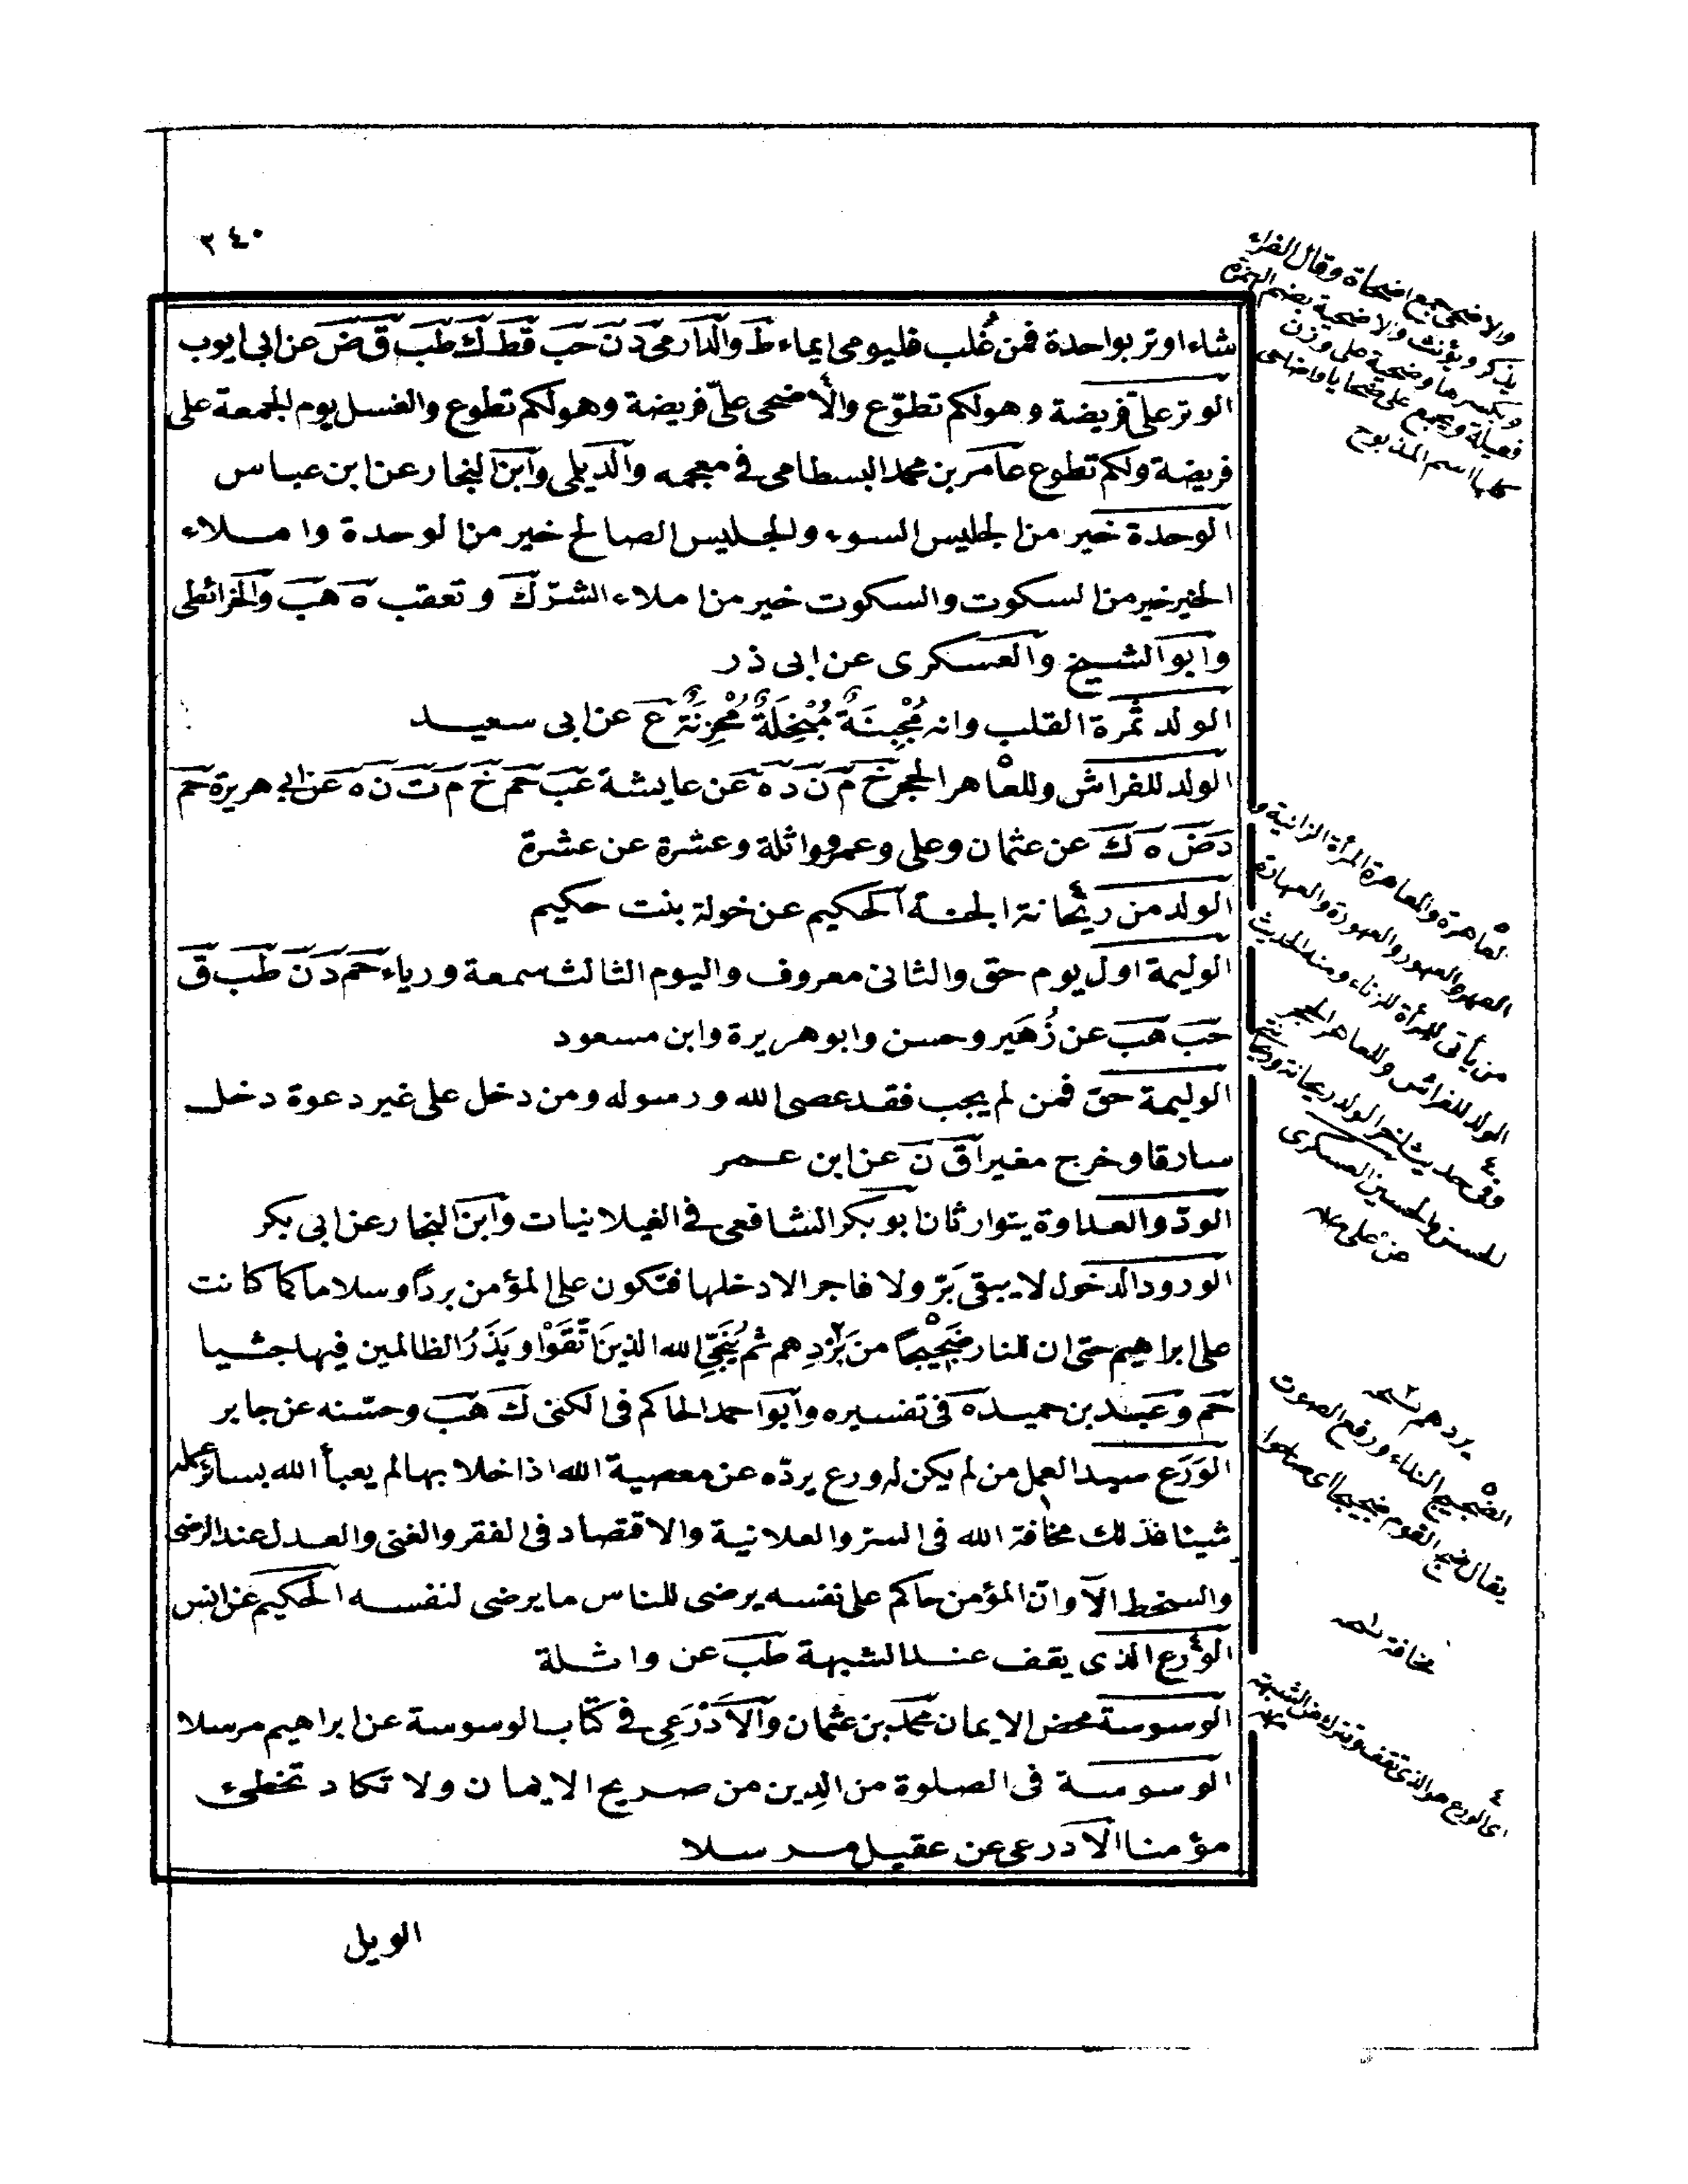 ٣٤٠
شاء اوتر بواحدة فمن غُلب فليومى ايماء ط والدارمى د ن حب قط ك طب ق ض عن ابى ايوب
الوتر علىّ فريضة وهو لكم تطوّع والاضحى علىّ فريضة وهو لكم تطوع والغسل يوم الجمعة على
فريضة ولكم تطوع عامر بن محمد البسطامى فى معجمه والديلى وابن النجار عن ابن عباس
الوحدة خير من الجليس السوء والجليس الصالح خير من الوحدة واملاء
الخير خير من السكوت والسكوت خير من املاء الشرّ ك وتعقب ه هب والخرائطى
وابو الشيخ والعسكرى عن ابى ذر
الولد ثمرة القلب وانه مُجْبِنَةٌ مُبْخِلَةٌ مُحْزِنَةٌ ع عن ابى سعيد
الولد للفراش وللعاهر الحجر خ م ن د ه عن عايشة عب حم خ م ت ن ه عن ابى هريرة حم
د ض ه ك عن عثمان وعلى وعمرو واثلة وعشرة عن عشرة
الولد من ريحانة الجنة الحكيم عن خولة بنت حكيم
الوليمة اول يوم حق والثانى معروف واليوم الثالث سمعة ورياء حم د ن طب ق
حب هب عن زُهَير وحسن وابو هريرة وابن مسعود
الوليمة حق فمن لم يجب فقد عصى الله ورسوله ومن دخل على غير دعوة دخل
سارقا وخرج مغيرا ق ن عن ابن عمر
الودّ والعداوة يتوارثان ابو بكر الشافعى فى الغيلانيات وابن النجار عن ابى بكر
الورود الدخول لا يبقى بَرّ ولا فاجر الا دخلها فتكون على المؤمن بردًا وسلاما كما كانت
على ابراهيم حتى ان للنار ضَجِيْجًا من بَرْدِهم ثم يُنَجِّى الله الذينَ اتَّقَوْا ويَذَرُ الظالمين فيها جثيا
حم وعبد بن حميد ه فى تفسيره وابو احمد الحاكم فى الكنى ك هب وحسّنه عن جابر
الوَرَع سيد العمل من لم يكن له ورع يردّه عن معصية الله اذا خلا بها لم يعبأ الله بسائر عمله
شيئا فذلك مخافة الله فى السرّ والعلانية والاقتصاد فى الفقر والغنى والعدل عند الرضى
والسخط الا وانّ المؤمن حاكم على نفسه يرضى للناس ما يرضى لنفسه الحكيم عن انس
الورع الذى يقف عند الشبهة طب عن واثلة
الوسوسة محض الايمان محمد بن عثمان والاَذْرَعِى فى كتاب الوسوسة عن ابراهيم مرسلا
الوسوسة فى الصلوة من الدين من صريح الايمان ولا تكاد تخطئ
مؤمنا الاذرعى عن عقيل مرسلا
الويل
والاضحى جمع اضحاة وقال الفراء
يذكر ويؤنث والاضحية بضم الهمزة
وبكسرها وضحية على وزن
فعيلة ويجمع على ضحايا واضاحى
كلها اسم المذبوح
العاهرة والمعاهرة المرأة الزانية و
العهر والعهور والعهورة والعهارة
من يأتى المرأة للزناء ومنه الحديث
الولد للفراش وللعاهر الحجر
وفى حديث اخر الولد ريحانة وريحانتى
الحسن والحسين العسكرى
عن على
يردهم نسخه
الضجيج النداء ورفع الصوت
يقال ضج القوم ضجيجا اى صاحوا
مخافة
اى الورع هو الذى تقف وتنزه من الشبهة